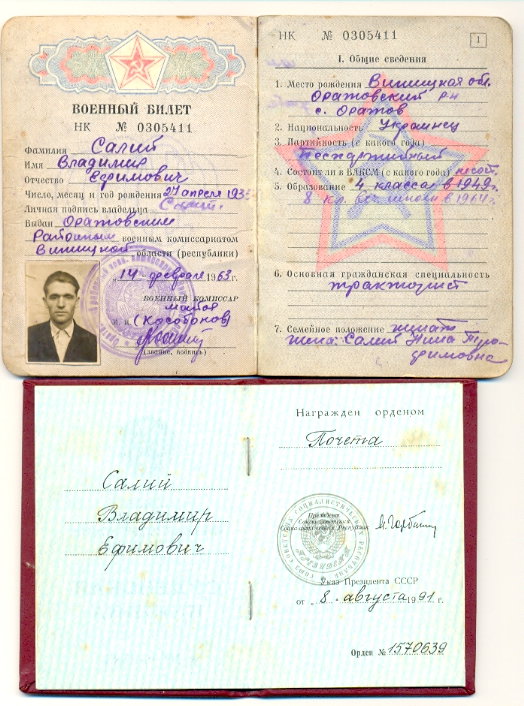 ВОЕННЫЙ БИЛЕТ
НК № 0305411
Фамилия Салий
Имя Владимир
Отчество Ефимович
Число, месяц и год рождения 27 апреля
Личная подпись владельца
Выдан Оратовским
Районным военным комиссариатом
Винницкой области (республики)
„14" февраля 1963 г.
ВОЕННЫЙ КОМИССАР
майор
м. п. (Кособоков)
(звание, подпись)
НК № 0305411
1
I. Общие сведения
1. Место рождения Винницкая обл.
Оратовский р-н
с. Оратов
2. Национальность Украинец
3. Партийность (с какого года)
Беспартийный
4. Состоит ли в ВЛКСМ (с какого года) несост.
5. Образование 4 класса в 1949г.
8 кл. в 1964г.
6. Основная гражданская специальность
тракторист
7. Семейное положение женат
жена: Салий Нина Тро-
фимовна
Награжден орденом
Почета
Салий
Владимир
Ефимович
Президент
Союза Советских
Социалистических Республик
М. Горбачев
Указ Президента СССР
от „8" августа 1991 г.
Орден № 1570639